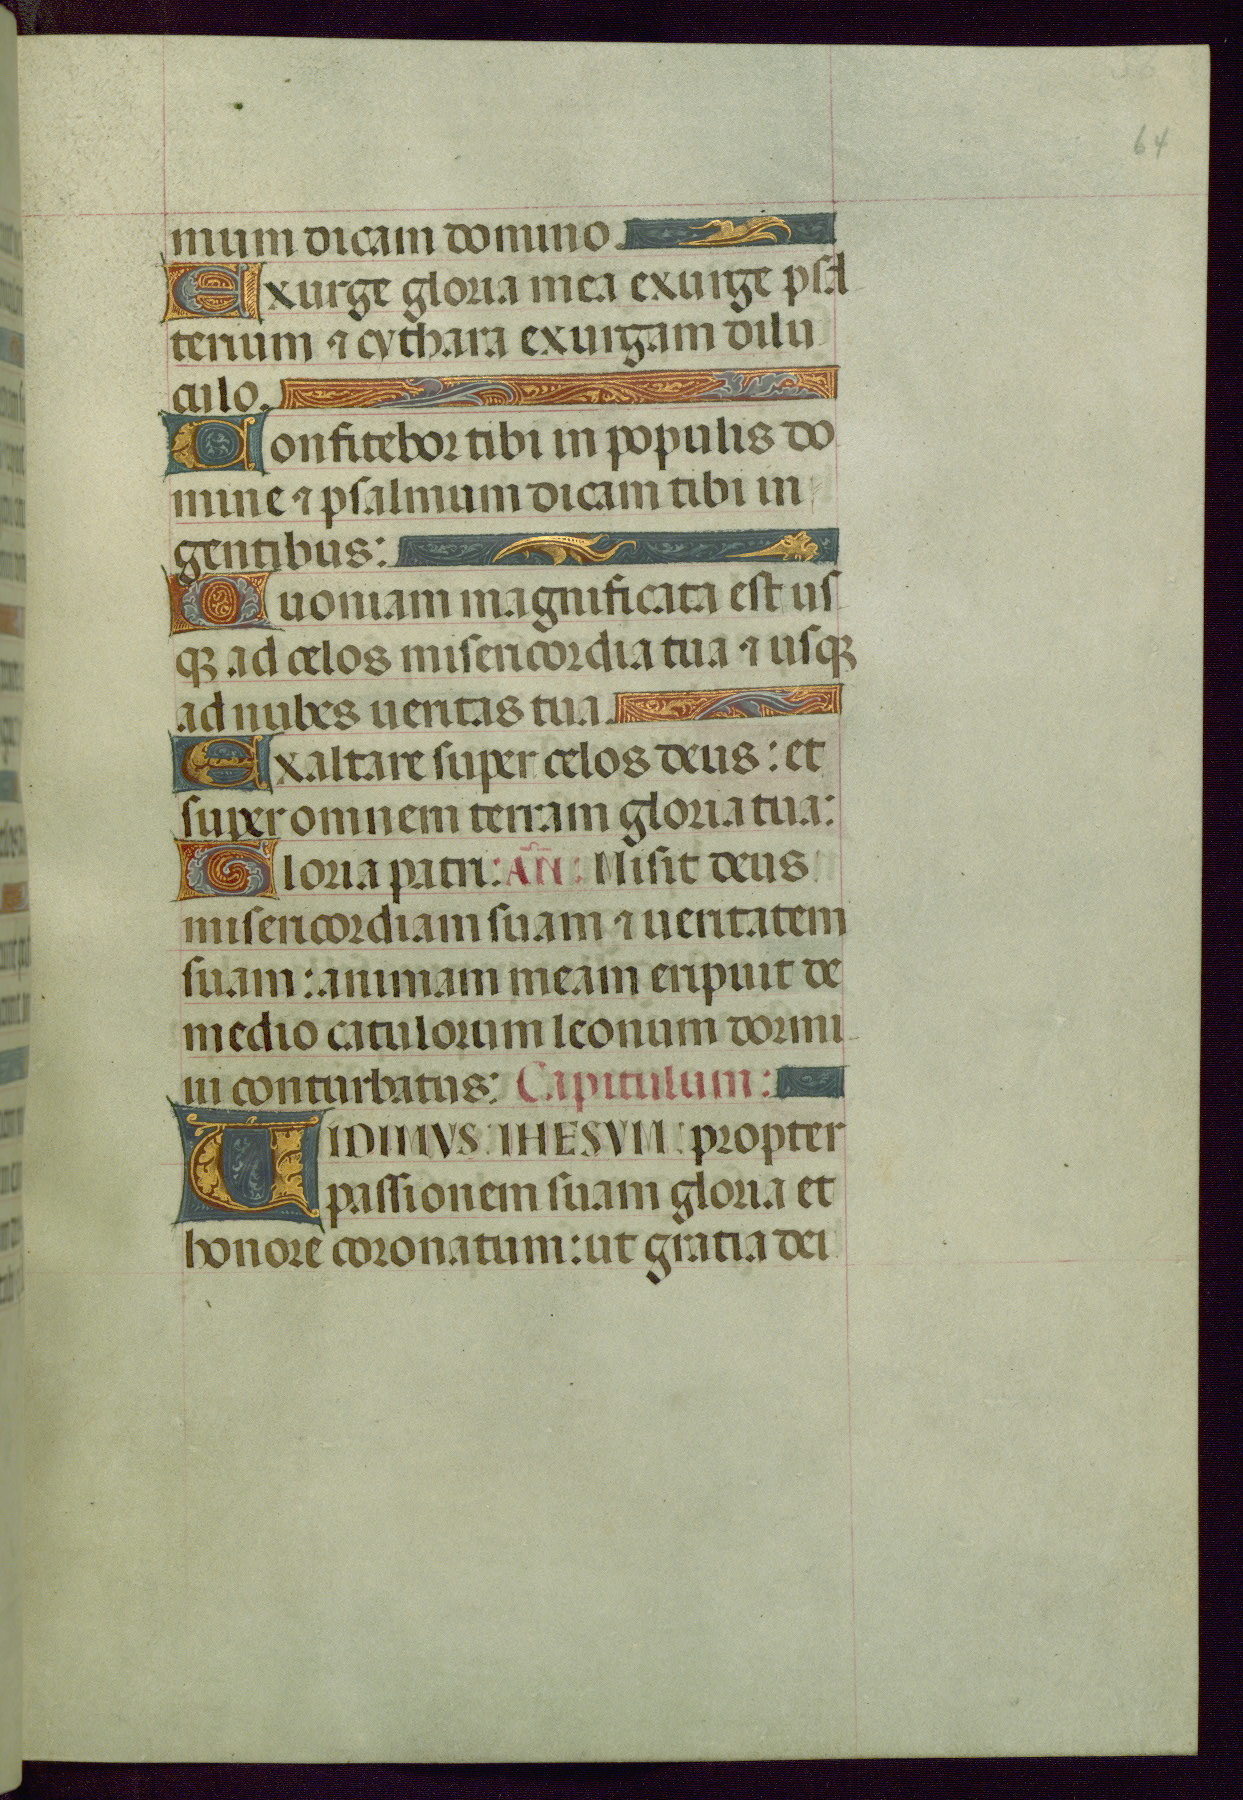 64
mum dicam domino.
Exurge gloria mea exurge psal
terium ⁊ cythara exurgam dilu
culo.
Confitebor tibi in populis do
mine ⁊ psalmum dicam tibi in
gentibus:
Quoniam magnificata est us
qꝫ ad celos misericordia tua ⁊ usqꝫ
ad nubes ueritas tua.
Exaltare super celos deus: et
super omnem terram gloria tua:
Gloria patri: AÑ: Misit deus
misericordiam suam ⁊ ueritatem
suam: animam meam eripuit de
medio catulorum leonum dormi
ui conturbatus: Capitulum:
UIDIMVS IHESVM: propter
passionem suam gloria et
honore coronatum: ut gratia dei